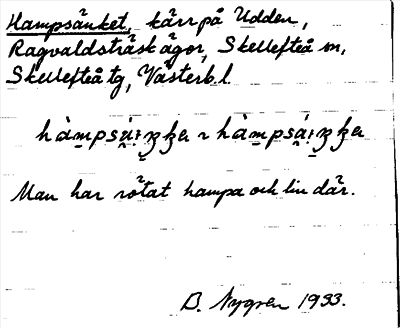 Hampsänket, kärr på Udden,
Ragvaldsträsk ägor, Skellefteå sn,
Skellefteå tg, Västerb. l.
Man har rötat hampa och lin där.
B. Nygren 1933.